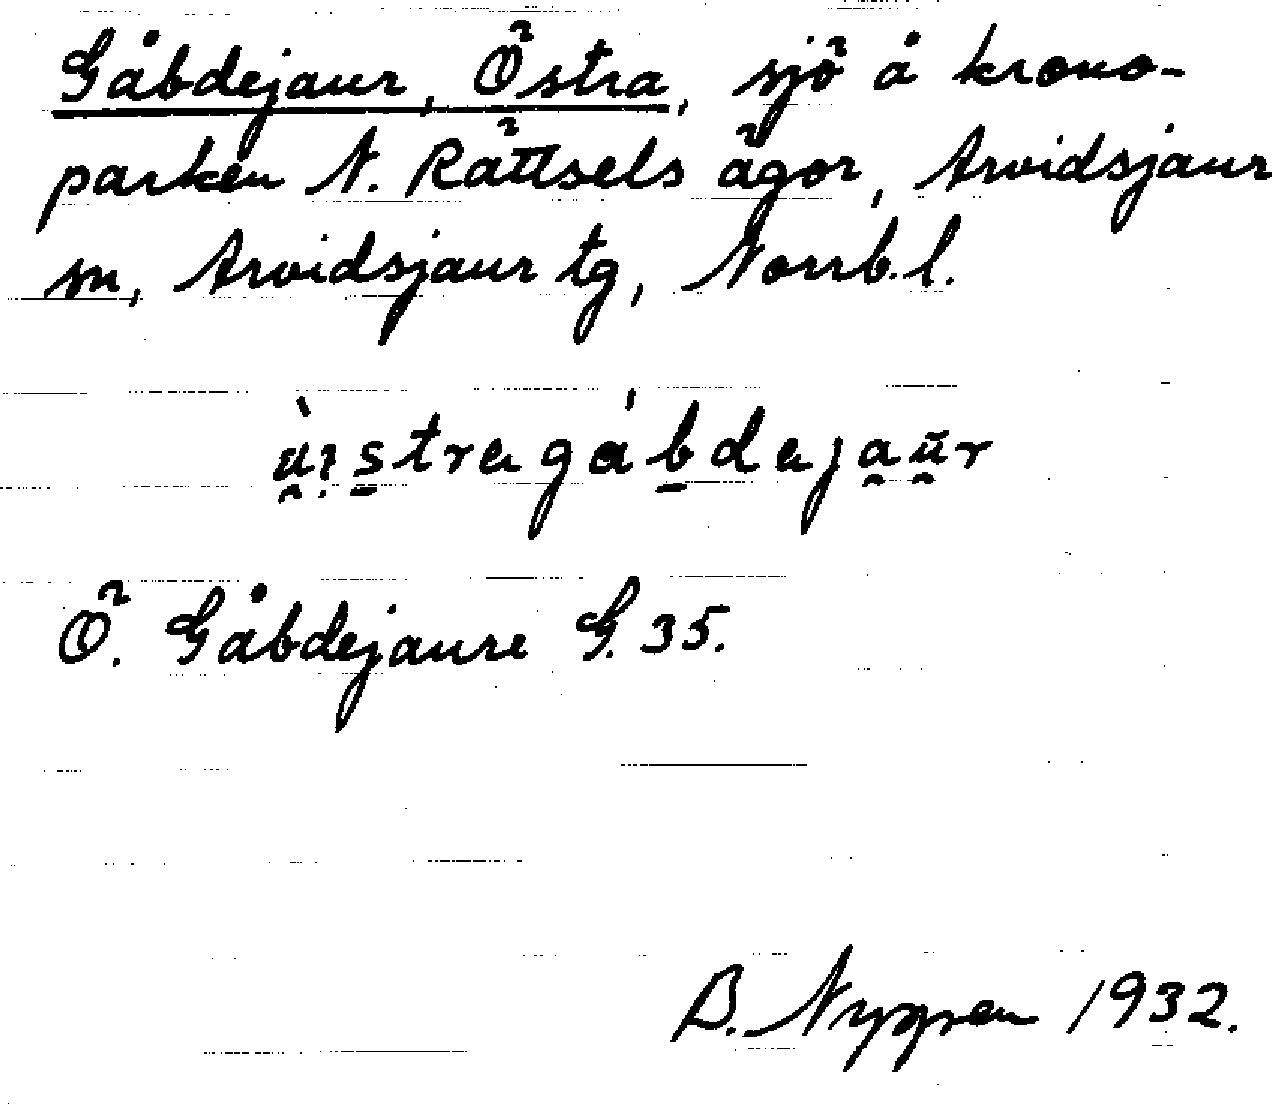 Gåbdejaur, Östra, sjö å krono-
parken N. Rättsels ägor, Arvidsjaur
sn, Arvidsjaur tg, Norrb. l.
Ö. Gåbdejaure G. 35.
B. Nygren 1932.